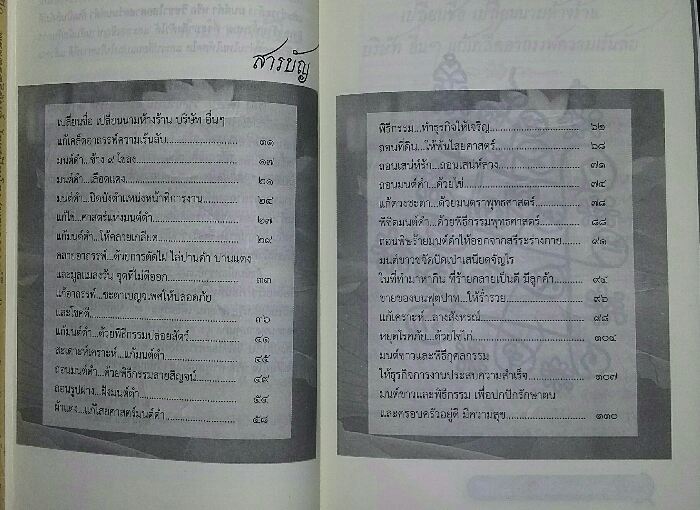 สารบัญ
เปลี่ยนชื่อ เปลี่ยนนามห้างร้าน บริษัท อื่นๆ
แก้เคล็ดอาถรรพ์ความเร้นลับ........................๑๑
มนต์ดำ...ช้าง ๙ โขลง........................๑๗
มนต์ดำ...เลือดแดง........................๒๑
มนต์ดำ...ปิดบังตำแหน่งหน้าที่การงาน........................๒๔
แก้ไข...ศาสตร์แห่งมนต์ดำ........................๒๗
แก้มนต์ดำ...ให้คลายเกลียด........................๒๙
คลายอาถรรพ์...ด้วยการตัดไฝ ไล่ปานดำ ปานแดง
และมูลแมลงวัน จุดที่ไม่ดีออก........................๓๓
แก้อาถรรพ์...ชะตาเบญจเพศให้ปลอดภัย
และโชคดี........................๓๖
แก้มนต์ดำ...ด้วยพิธีกรรมปล่อยสัตว์........................๔๑
สะเดาะห์เคราะห์...แก้มนต์ดำ........................๔๕
ถอนมนต์ดำ...ด้วยพิธีกรรมสายสิญจน์........................๔๙
ถอนรูปผาง...ฝังมนต์ดำ........................๕๔
ผ้าแดง...แก้ไสยศาสตร์มนต์ดำ........................๕๘
พิธีกรรม...ทำธุรกิจให้เจริญ........................๖๒
ถอนที่ดิน...ให้พ้นไสยศาสตร์........................๖๘
ถอนเสน่ห์รัก...ถอนเสน่ห์ลวง........................๗๑
ถอนมนต์ดำ...ด้วยไข่........................๗๔
แก้ดวงชะตา...ด้วยมนตราพุทธศาสตร์........................๗๘
พิชิตมนต์ดำ...ด้วยพิธีกรรมพุทธศาสตร์........................๘๘
ถอนพิษร้ายมนต์ดำให้ออกจากสรีระร่างกาย........................๙๑
มนต์ขาวขจัดปัดเป่าเสนียดจัญไร
ในที่ทำมาหากิน ที่ร้ายกลายเป็นดี มีลูกค้า........................๙๔
ขายของบนฟุตปาท...ให้ร่ำรวย........................๙๖
แก้เคราะห์...ลางสังหรณ์........................๙๘
หยุดโรคภัย...ด้วยไข่ไก่........................๑๐๔
มนต์ขาวและพิธีกุศลกรรม
ให้ธุรกิจการงานประสบความสำเร็จ........................๑๐๗
มนต์ขาวและพิธีกรรม เพื่อปกปักรักษาตน
และครอบครัวอยู่ดี มีความสุข........................๑๑๐